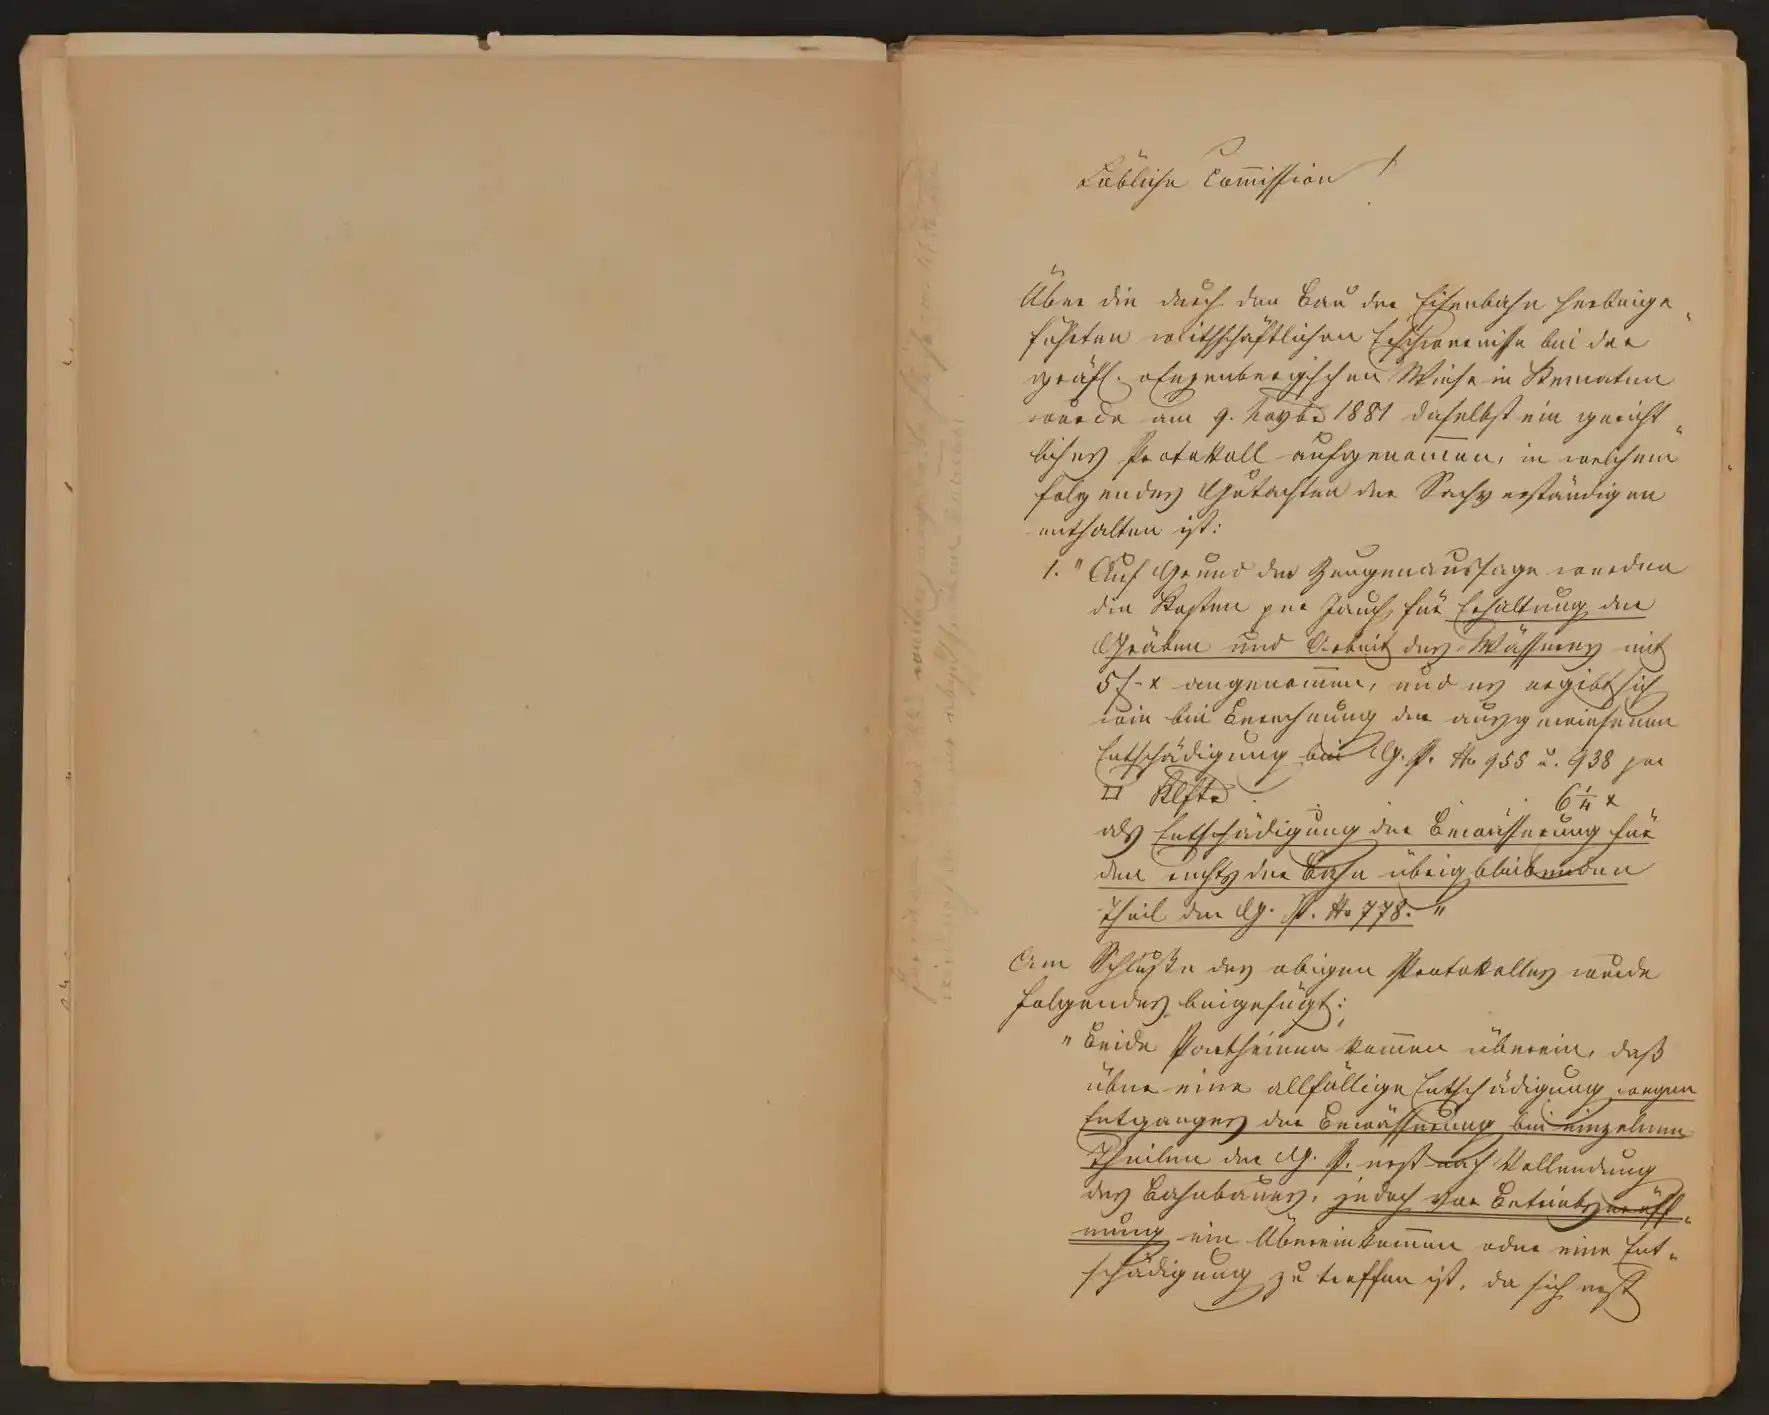 Löbliche Commission!
Über die durch den Bau der Eisenbahn herbeige-
führten wirthschäftlichen Erschwernisse bei der
gräfl. Enzenbergischen Wiese in Kematen
wurde am 9. Novbr 1881 daselbst ein gericht-
liches Protokoll aufgenom̅en, in welchem
folgendes Gutachten der Sachverständigen
enthalten ist:
1. "Auf Grund der Zeugenaussage werden
die Kosten per Jauch für Erhaltung der
Gräben und Arbeit des Wässerns mit
5 f - x angenom̅en, und es ergibt sich
wie bei Berechnung der ausgewiesenen
Entschädigung bei G. P. No 955 u. 938 per
□ Klftr 6 1/4 x
als Entschädigung der Bewässerung für
den rechts der Bahn übrig bleibenden
Theil der G. P. No 778."
Am Schluße des obigen Protokolles wurde
folgendes beigefügt:
"Beide Partheien kom̅en überein, daß
über eine allfällige Entschädigung wegen
Entganges der Bewässerung bei einzelnen
Theilen der G. P. erst nach Vollendung
des Bahnbaues, jedoch vor Betriebseröff-
nung ein Übereinkom̅en oder eine Ent-
schädigung zu treffen ist, da sich erst